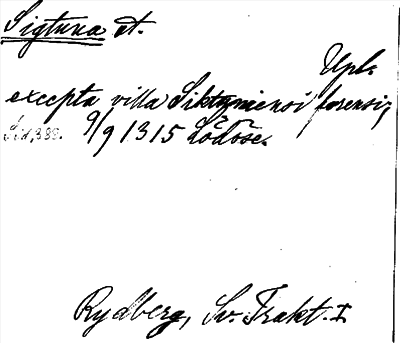 Sigtuna st.
Upl.
excepta villa Siktyniensi forensi,
Sid. 388. 9/9 1315 Lödöse.
Rydberg, Sv. Trakt. I